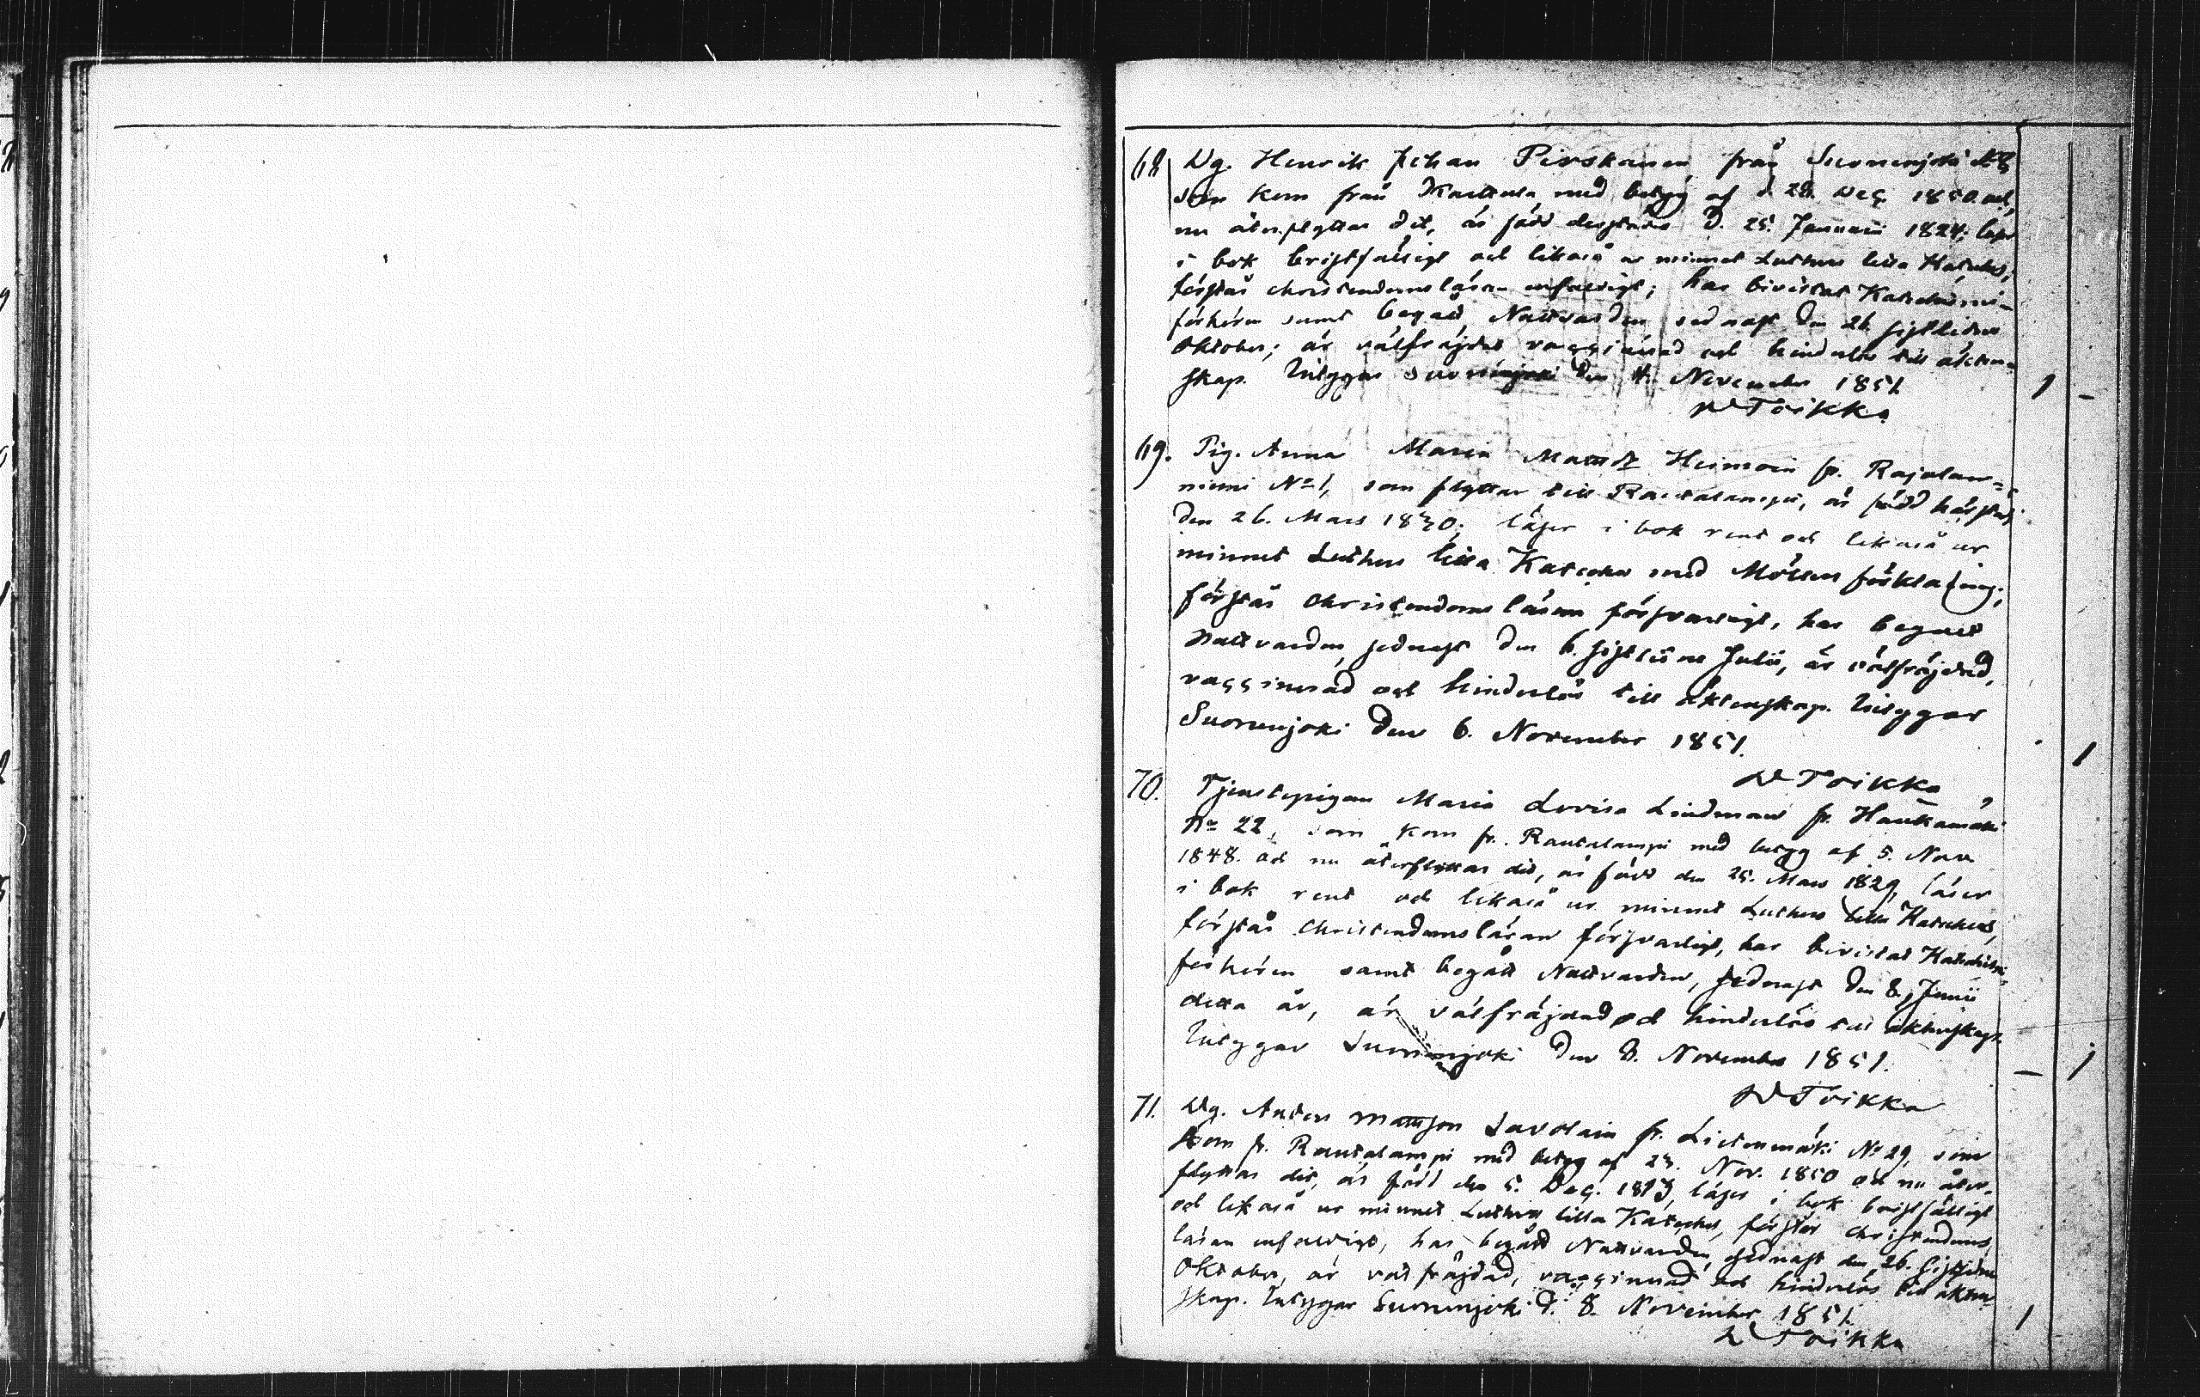 68 Dg. Henrik Johan Pirskanen från Suonenjoki № 8
som kom från Karttula med betyg af d. 28. Dec. 1850. och
nu återflyttar dit, är född derstädes d. 25. Januarii 1824; läser
i bok bristfäligt och likaså ur minnet Luthers lilla Kateches,
förstår christendomsläran enfaldigt; har bivistat Katechismi-
förhören samt begått Nattvarden sednast den 26 sistlidne
Oktober; är välfräjdad vaccinerad och hinderlös till äkten-
skap. Intygar Suonenjoki den 4. November 1851.
W Toikka
1 –
69. Pig. Anna Maria Mattsdr Heimoin fr. Rajalan-
niemi № 1, som flyttar till Rautalampi, är född härstädes
den 26. Mars 1830; läser i bok rent och likaså ur
minnet Luthers lilla Kateches med Möllers förklaring;
förstår Christendomsläran försvarligt, har begått
Nattvarden, sednast den 6. sistlidne Julii, är välfräjdad,
vaccinerad och hinderlös till äktenskap. Intygar
Suonenjoki den 6. November 1851.
W Toikka
1
70. Tjenstepigan Maria Lovisa Lindman fr. Haukamäki
№ 22, som kom fr. Rautalampi med betyg af 5. Nov.
1848. och nu återflyttar dit, är född den 25. Mars 1829, läser
i bok rent och likaså ur minnet Luthers lilla Kateches,
förstår Christendomsläran försvarligt, har bivistat Katechismi
förhören samt begått Nattvarden, sednast den 8. Junii
detta år, är välfräjdad och hinderlös till äktenskap.
Intygar Suonenjoki den 8. November 1851.
W Toikka
– 1
71. Dg. Anders Mattsson Savolain fr. Lietenmäki № 29, som
kom fr. Rautalampi med betyg af 23. Nov. 1850 och nu åter-
flyttar dit, är född den 5. Dec. 1813, läser i bok bristfälligt
och likaså ur minnet Luthers lilla Kateches, förstår christendoms
läran enfaldigt, har begått Nattvarden, sednast den 26. sistlidne
Oktober, är välfräjdad, vaccinerad och hinderlös till äkten-
skap. Intygar Suonenjoki d. 8. November 1851.
W Toikka
1